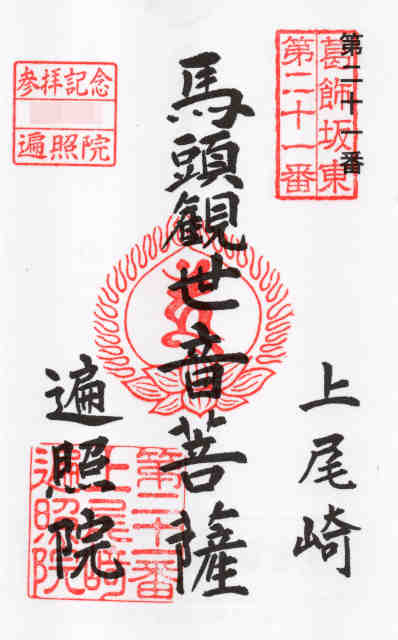 第二十一番
葛飾坂東
第二十一番
上尾崎
馬頭観世音菩薩
参拝記念
遍照院
遍照院
第二十一番
上尾崎
遍照院